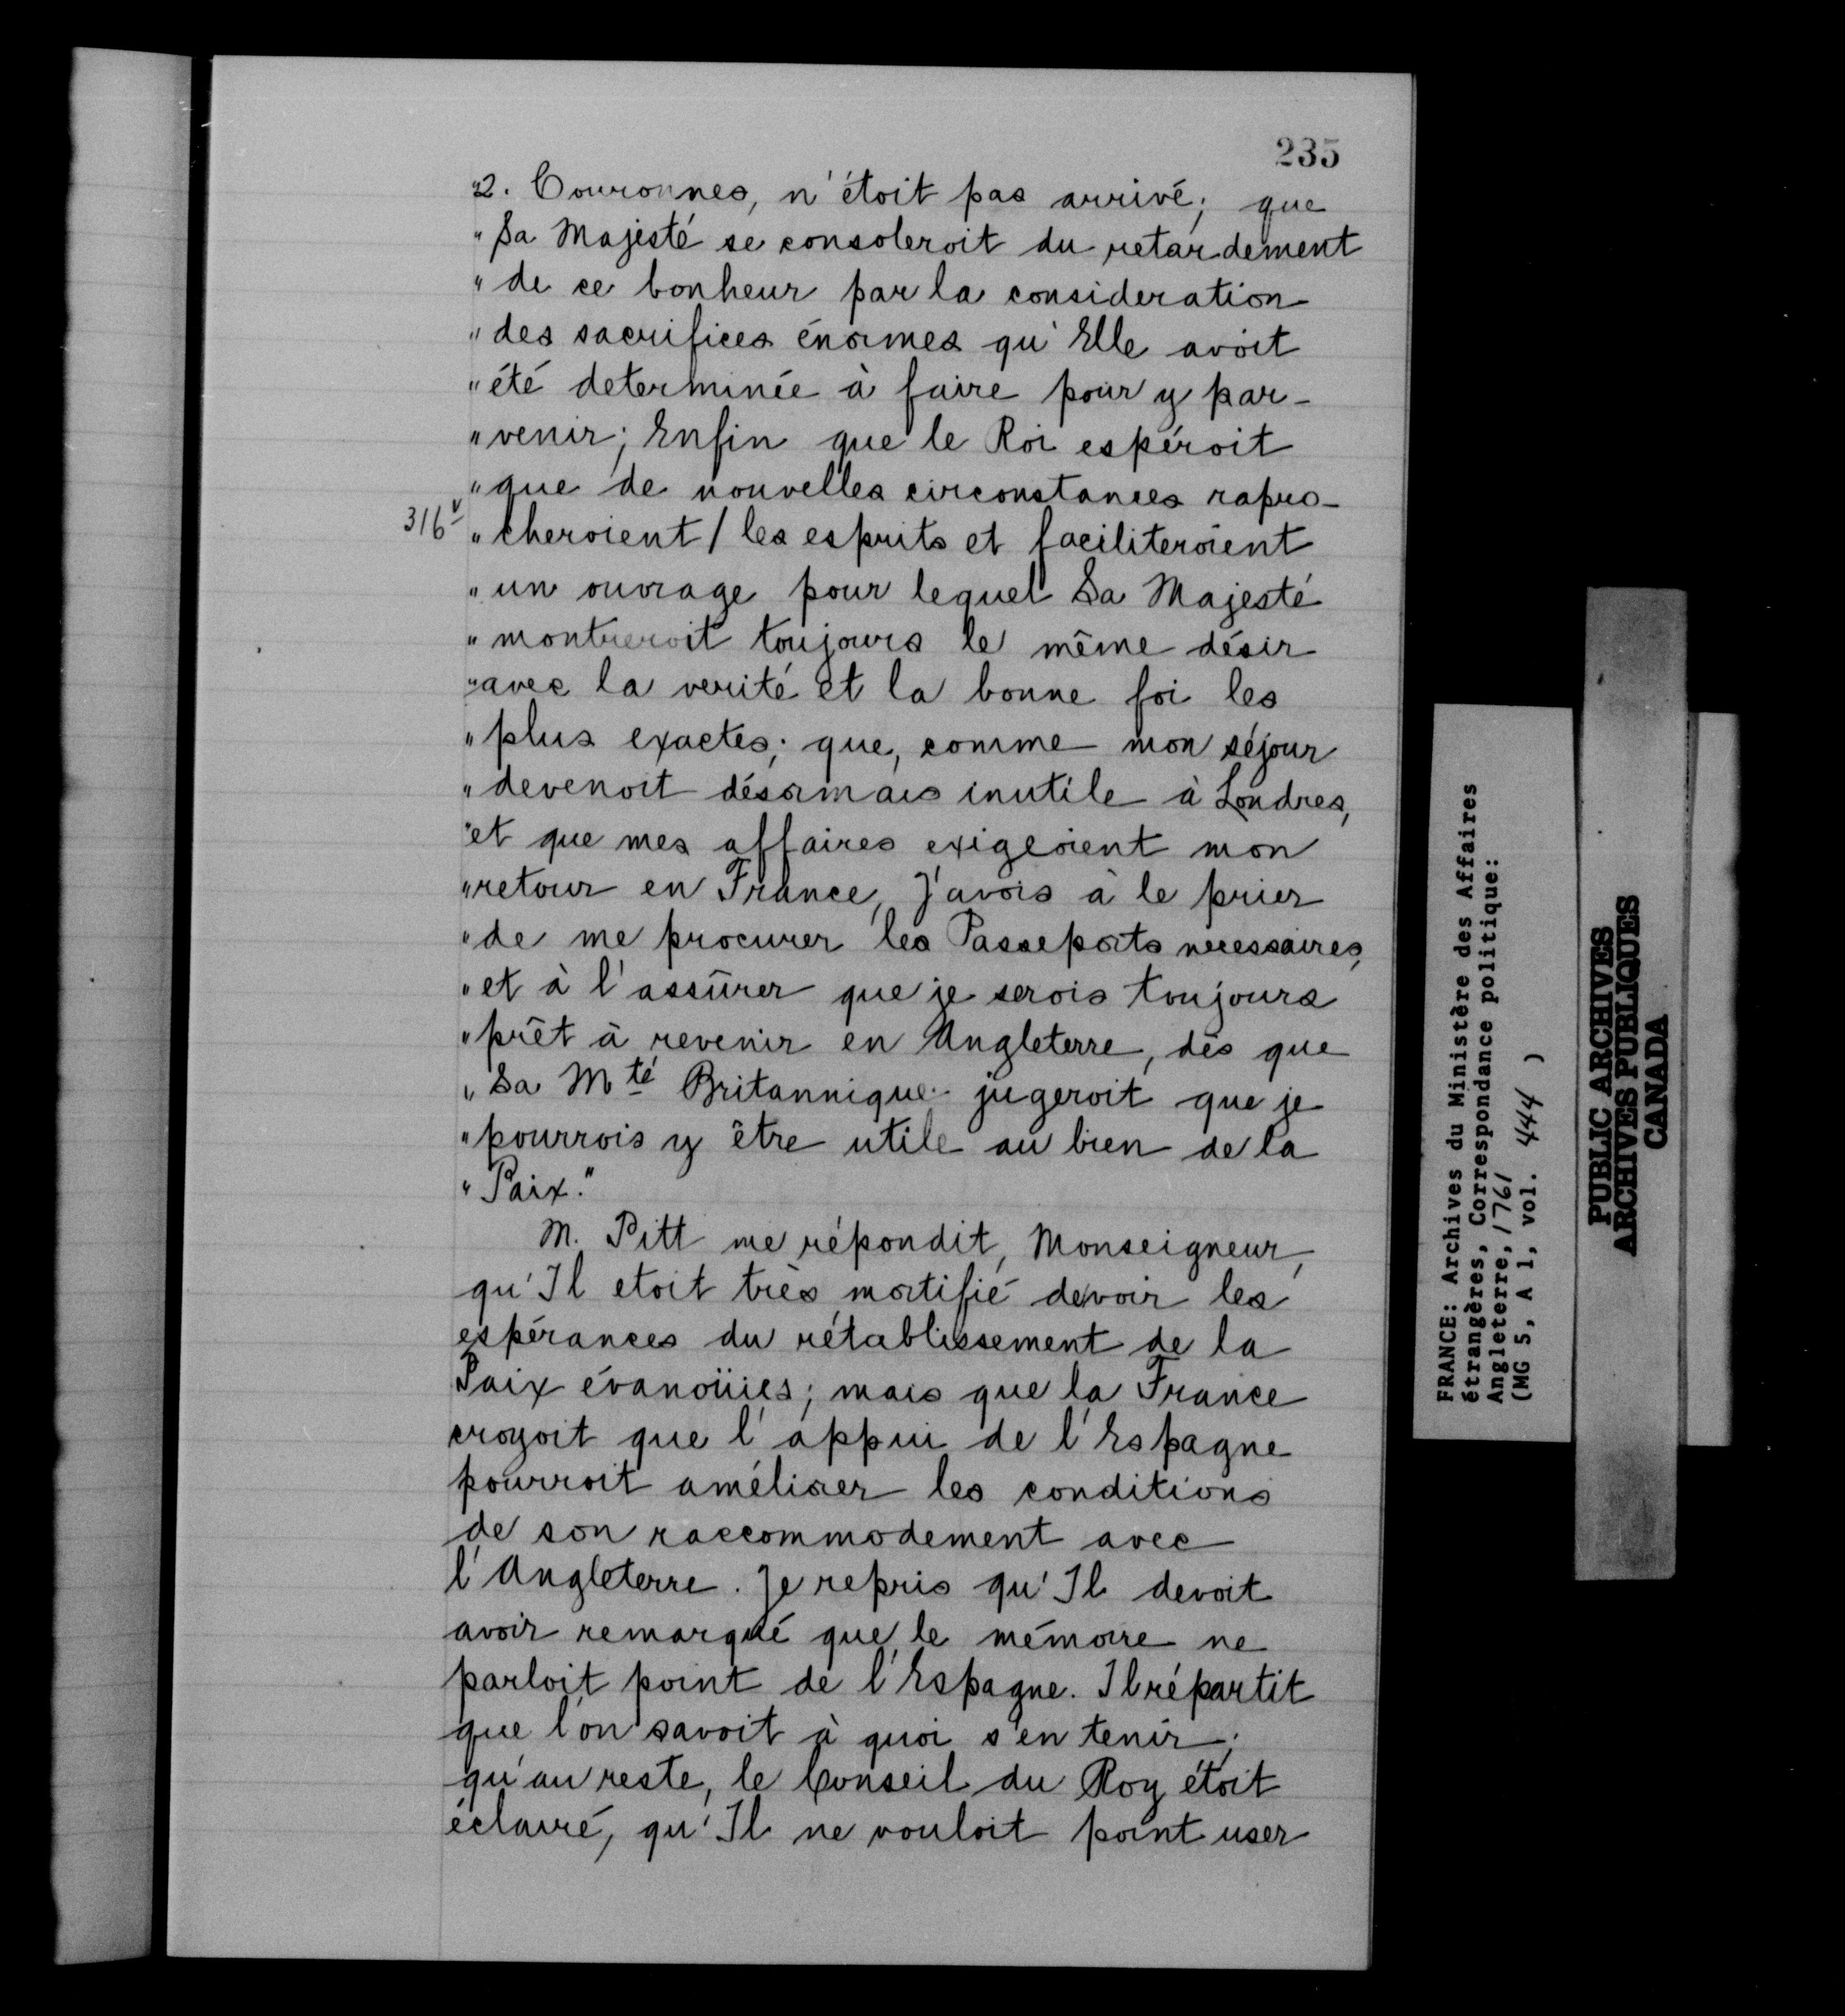 235
"2. Couronnes, n'étoit pas arrivé; que
"Sa Majesté se consoleroit du retardement
"de ce bonheur par la consideration
"des sacrifices énormes qu'Elle avoit
"été determinée à faire pour y par-
"venir; Enfin que le Roi espéroit
"que de nouvelles circonstances rapro-
316v "cheroient / les esprits et faciliteroient
"un ouvrage pour lequel Sa Majesté
"montreroit toujours le même désir
"avec la verité et la bonne foi les
"plus exactes; que, comme mon séjour
"devenoit désormais inutile à Londres,
"et que mes affaires exigeoient mon
"retour en France, J'avois à le prier
"de me procurer les Passeports necessaires,
"et à l'assûrer que je serois toujours
"prêt à revenir en Angleterre, dès que
"Sa Mté Britannique jugeroit que je
"pourrois y être utile au bien de la
"Paix."
M. Pitt me répondit, Monseigneur,
qu'Il etoit très mortifié de voir les
espérances du rétablissement de la
Paix évanoüies; mais que la France
croyoit que l'appui de l'Espagne
pourroit améliorer les conditions
de son raccommodement avec
l'Angleterre. Je repris qu'Il devoit
avoir remarqué que le mémoire ne
parloit point de l'Espagne. Il répartit
que l'on savoit à quoi s'en tenir;
qu'au reste, le Conseil du Roy étoit
éclairé, qu'Il ne vouloit point user
FRANCE: Archives du Ministère des Affaires
étrangères, Correspondance politique:
Angleterre, 1761
(MG 5, A 1, vol. 444 )
PUBLIC ARCHIVES
ARCHIVES PUBLIQUES
CANADA